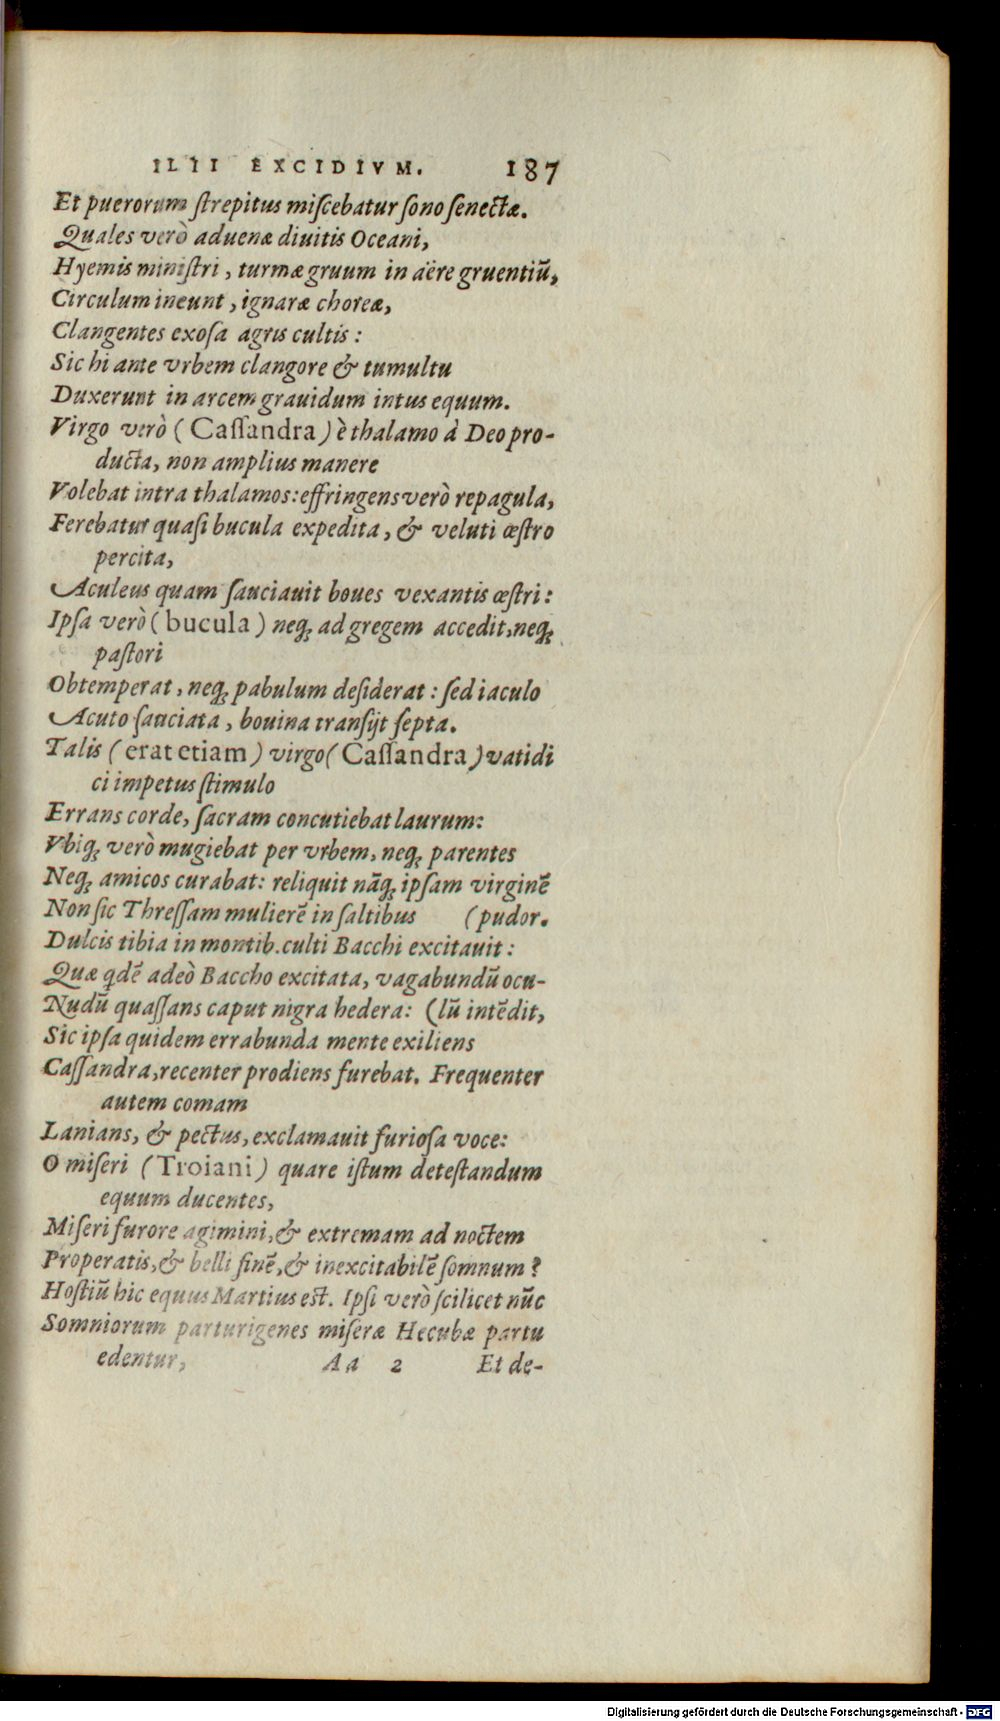 ILII EXCIDIVM. 187
Et puerorum ſtrepitus miſcebatur ſono ſenectæ.
Quales verò aduenæ diuitis Oceani,
Hyemis miniſtri, turmæ gruum in aëre gruentiũ,
Circulum ineunt, ignaræ choreæ,
Clangentes exoſa agris cultis:
Sic hi ante vrbem clangore & tumultu
Duxerunt in arcem grauidum intus equum.
Virgo verò (Caſſandra) è thalamo à Deo pro-
ducta, non amplius manere
Volebat intra thalamos: effringens verò repagula,
Ferebatur quaſi bucula expedita, & veluti œſtro
percita,
Aculeus quam ſauciauit boues vexantis œſtri:
Ipſa verò (bucula) neq; ad gregem accedit, neq;
paſtori
Obtemperat, neq; pabulum deſiderat: ſed iaculo
Acuto ſauciata, bouina tranſijt ſepta.
Talis (erat etiam) virgo (Caſſandra) vatidi
ci impetus ſtimulo
Errans corde, ſacram concutiebat laurum:
Vbiq; verò mugiebat per vrbem, neq; parentes
Neq; amicos curabat: reliquit nãq; ipſam virginẽ
Non ſic Threſſam mulierẽ in ſaltibus (pudor.
Dulcis tibia in montib. culti Bacchi excitauit:
Quæ qdẽ adeò Baccho excitata, vagabundũ ocu-
Nudũ quaſſans caput nigra hedera: (lũ intẽdit,
Sic ipſa quidem errabunda mente exiliens
Caſſandra, recenter prodiens furebat. Frequenter
autem comam
Lanians, & pectus, exclamauit furioſa voce:
O miſeri (Troiani) quare iſtum deteſtandum
equum ducentes,
Miſeri furore agimini, & extremam ad noctem
Properatis, & belli finẽ, & inexcitabilẽ ſomnum?
Hoſtiũ hic equus Martius eſt. Ipſi verò ſcilicet nũc
Somniorum parturigenes miſeræ Hecubæ partu
edentur, Aa 2 Et de-
Digitalisierung gefördert durch die Deutsche Forschungsgemeinschaft - DFG